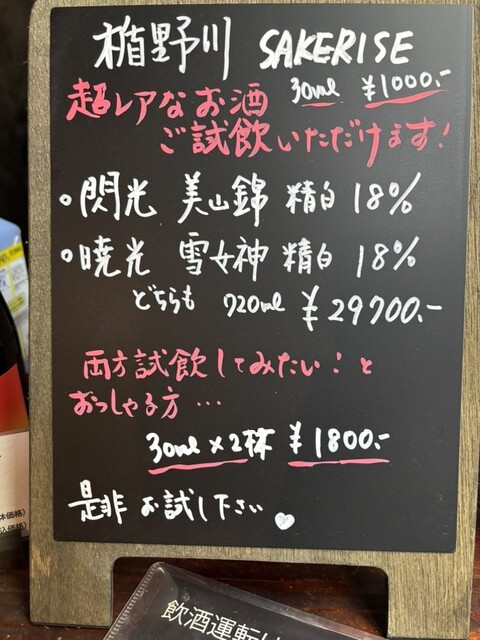 楯野川 SAKERISE
30ml ¥1000.-
超レアなお酒
ご試飲いただけます!
• 閃光 美山錦 精白 18%
• 暁光 雪女神 精白 18%
どちらも 720ml ¥29700.-
両方試飲してみたい!と
おっしゃる方…
30ml×2杯 ¥1800.-
是非 お試し下さい
体価格)
込価格)
飲酒運転